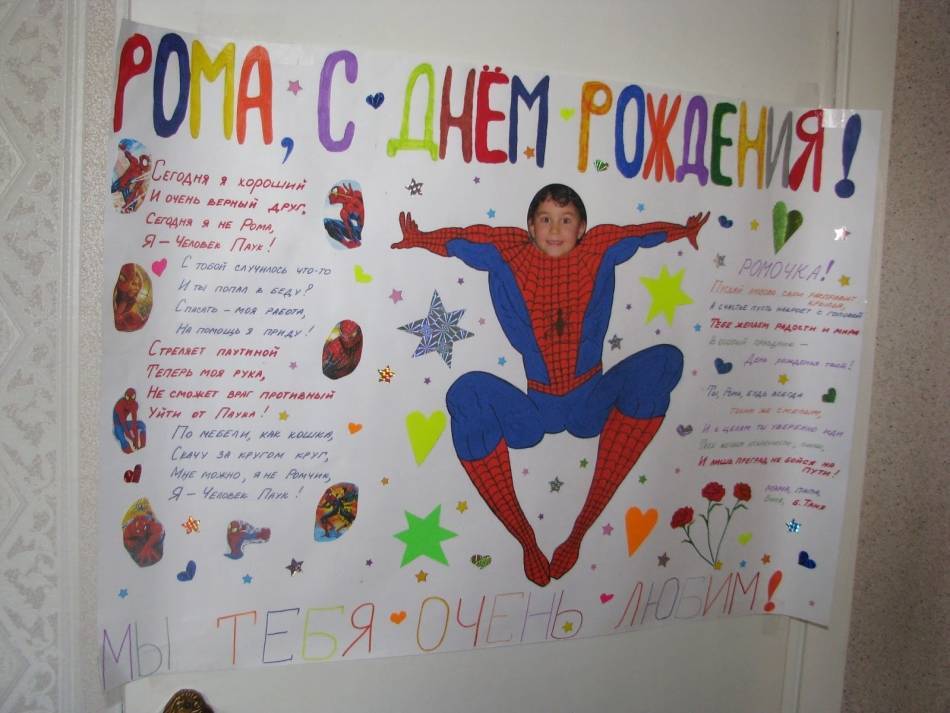 РОМА, С ДНЁМ РОЖДЕНИЯ!
Сегодня я хороший
И очень верный друг.
Сегодня я не Рома,
Я – Человек Паук!
С тобой случилось что-то
И ты попал в беду?
Спасать – моя работа,
На помощь я приду!
Стреляет паутиной
Теперь моя рука,
Не сможет враг противный
Уйти от Паука!
По мебели, как кошка,
Скачу за кругом круг,
Мне можно, я не Ромчик,
Я – Человек Паук!
РОМОЧКА!
крылья
А счастье пусть накроет с головой
Тебе желаем радости и мира
В особый праздник –
День рожденья твой!
Ты, Рома, будь всегда
таким же смелым,
И к целям ты уверенно иди
И лишь преград не бойся на
пути!
мама, папа,
б. Таня
МЫ ТЕБЯ ОЧЕНЬ ЛЮБИМ!